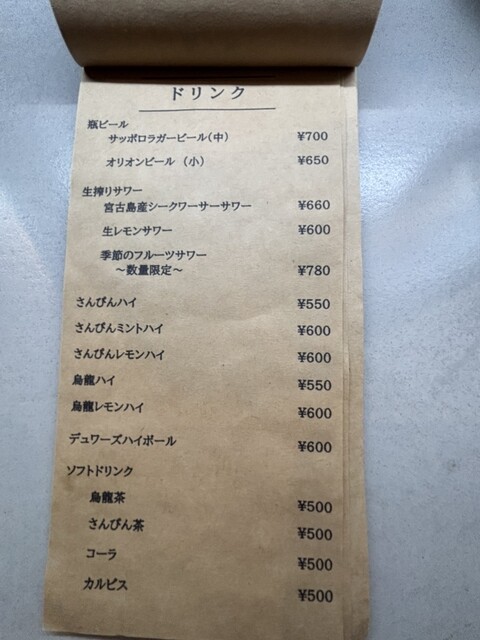 ドリンク
瓶ビール
サッポロラガービール(中) ¥700
オリオンビール (小) ¥650
生搾りサワー
宮古島産シークワーサーサワー ¥660
生レモンサワー ¥600
季節のフルーツサワー
～数量限定～ ¥780
さんぴんハイ ¥550
さんぴんミントハイ ¥600
さんぴんレモンハイ ¥600
烏龍ハイ ¥550
烏龍レモンハイ ¥600
デュワーズハイボール ¥600
ソフトドリンク
烏龍茶 ¥500
さんぴん茶 ¥500
コーラ ¥500
カルピス ¥500